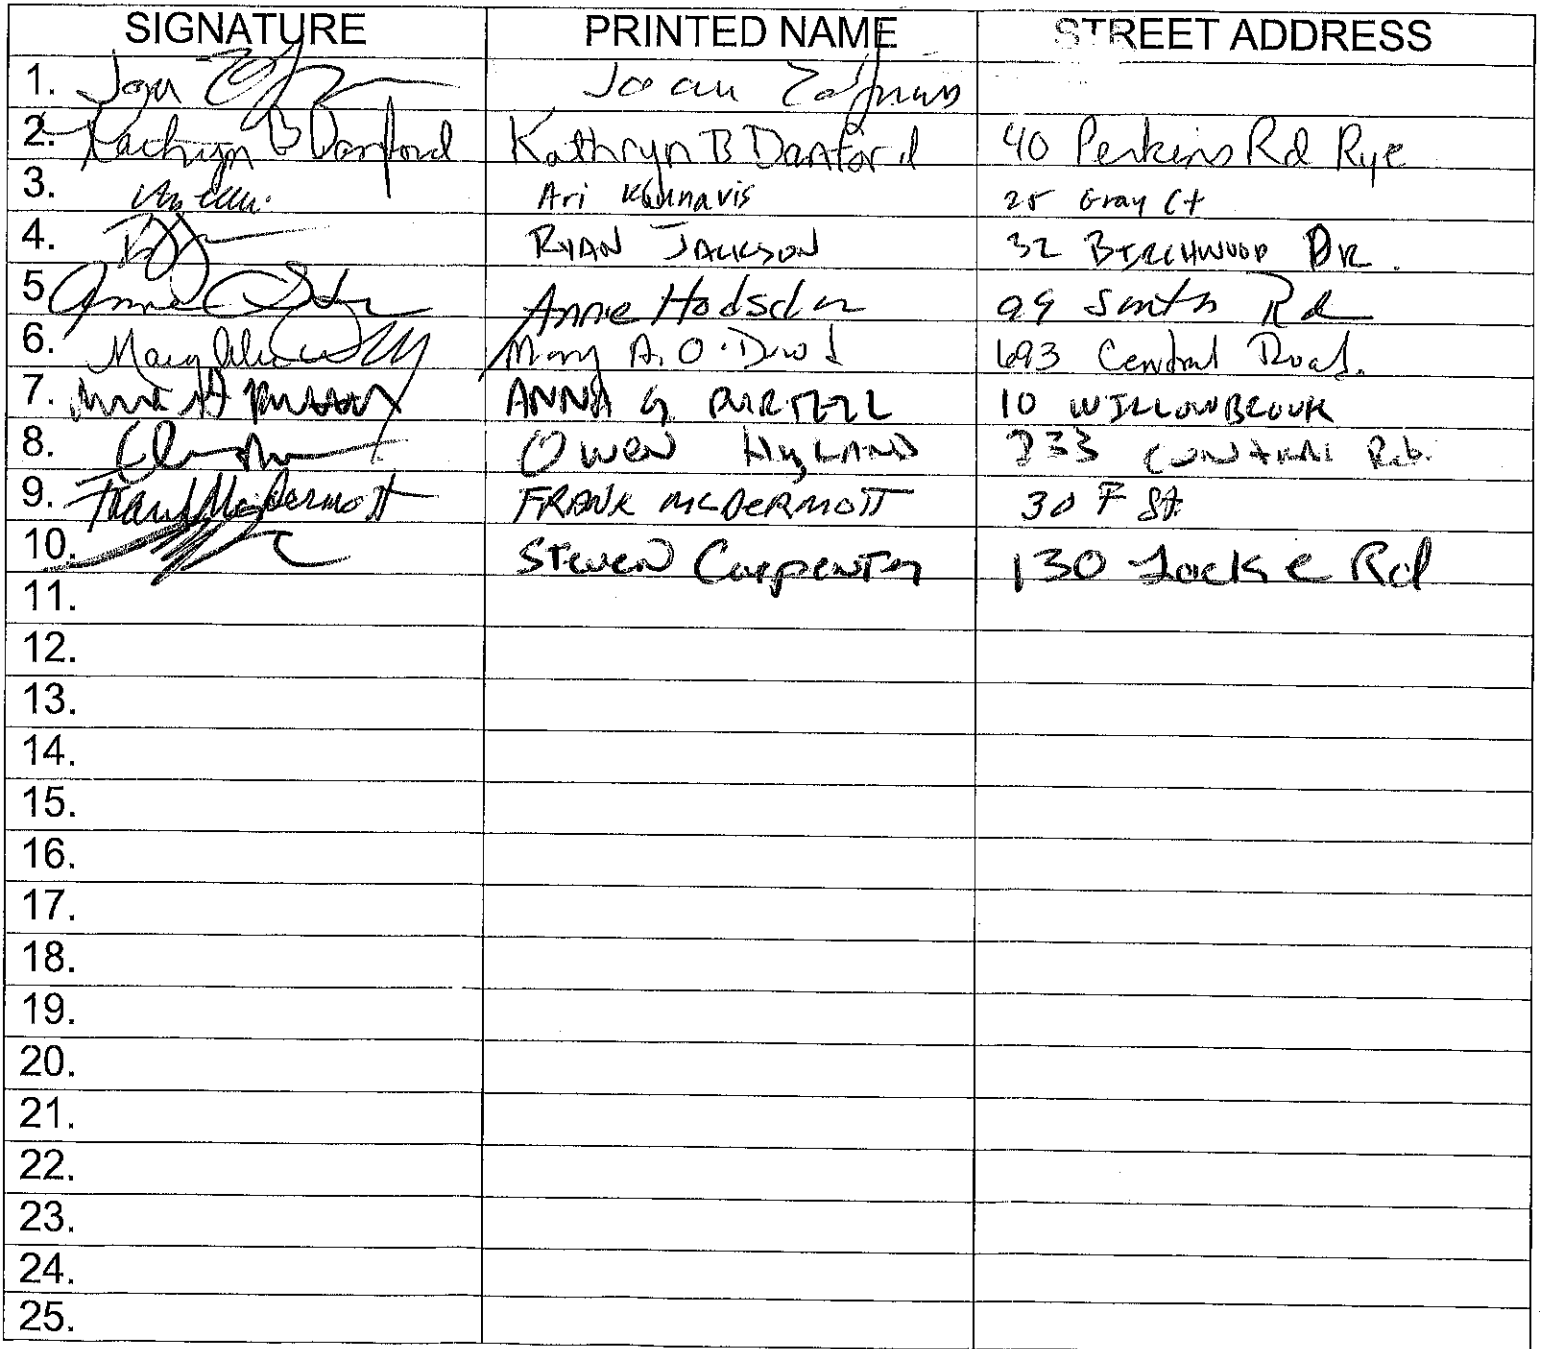 SIGNATURE PRINTED NAME STREET ADDRESS
1. Joan Joan
2. Kathryn B Danford Kathryn B Danford 40 Perkins Rd Rye
3. Ari 25 Gray Ct
4. RYAN JACKSON 32 BIRCHWOOD DR.
5 Anne Annie Hodsdon 99 Rd
6. Mary Mary A. 693 Central Road.
7. ANNA G 10 WILLOWBROOK
8. OWEN HYLAND 833 CENTRAL Rd.
9. Frank McDermott FRANK MCDERMOTT 30 F St
10. Steven Carpenter 130 Locke Rd
11.
12.
13.
14.
15.
16.
17.
18.
19.
20.
21.
22.
23.
24.
25.